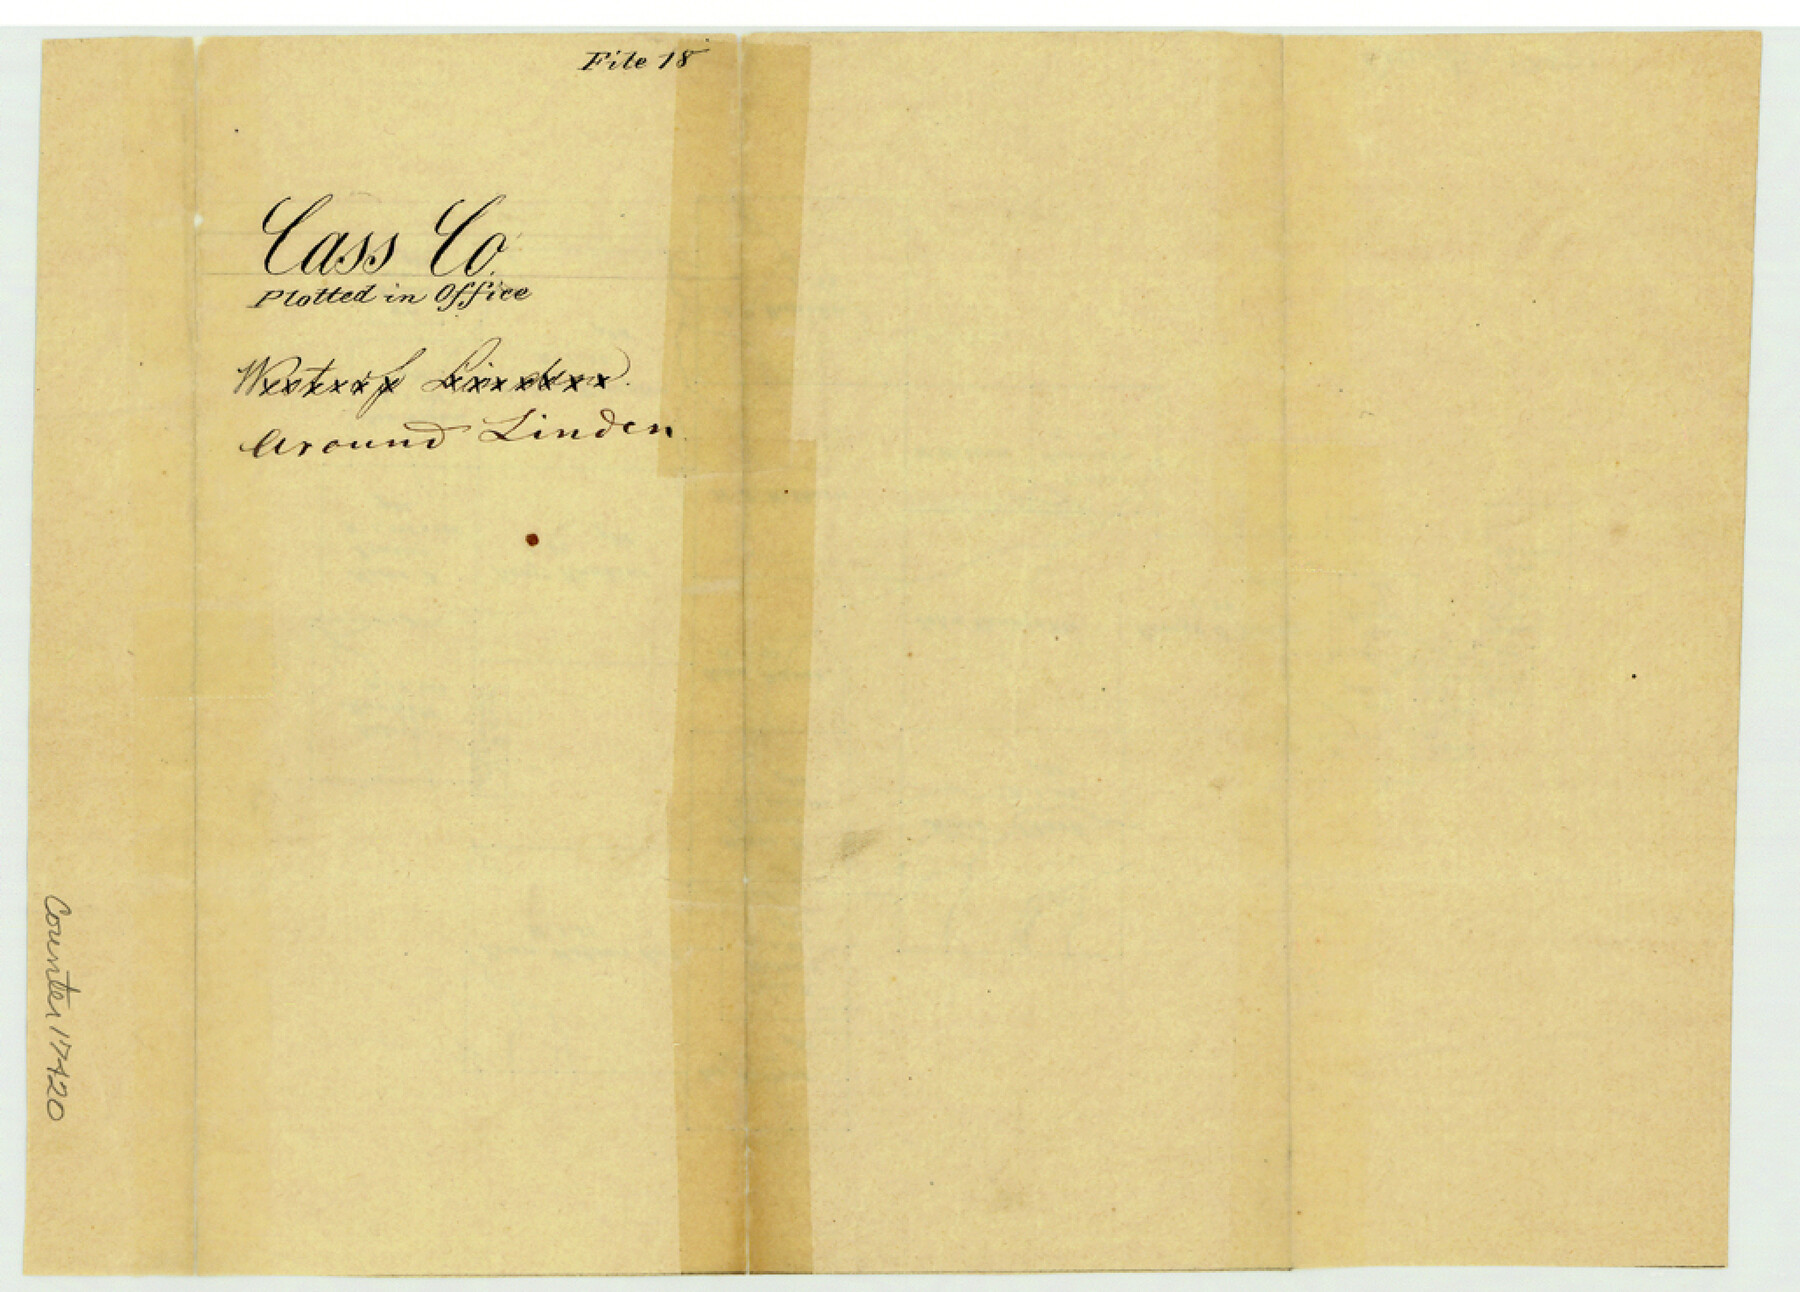 File 18
Cass Co.
Plotted in Office
West of Linden.
Around Linden
Counter 17420